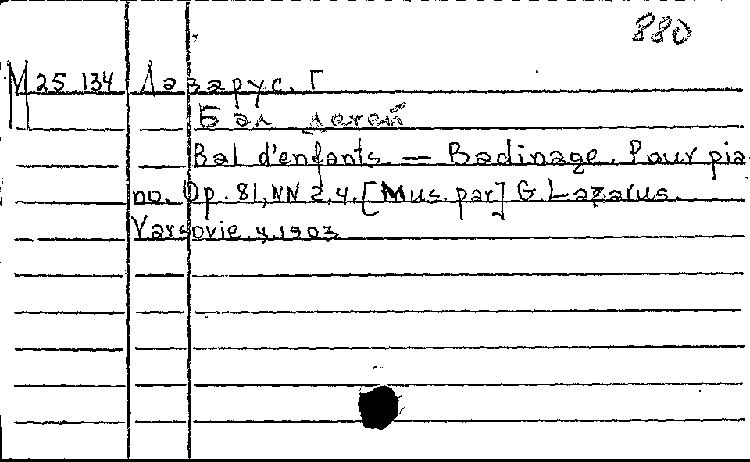 880
М 25 134 Лазарус. Г
Бал детей
Bal d'enfants. — Badinage. Pour pia-
no. Op. 81, NN 2,4. [Mus. par] G. Lazarus.
Varsovie, у, 1903